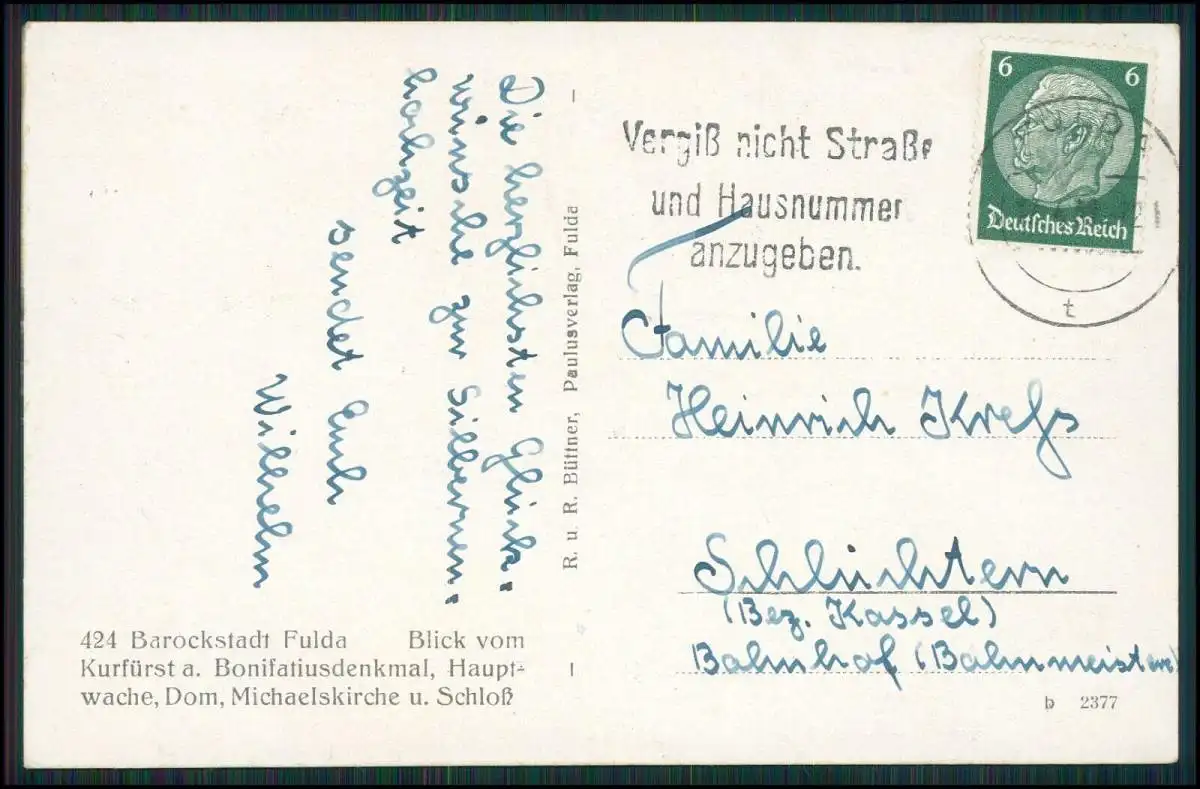 Die herzlichsten Glück-
wünsche zur Silbernen-
hochzeit
sendet Euch
Wilhelm
424 Barockstadt Fulda Blick vom
Kurfürst a. Bonifatiusdenkmal, Haupt-
wache, Dom, Michaelskirche u. Schloß
R. u. R. Büttner, Paulusverlag, Fulda
Vergiß nicht Straße
und Hausnummer
anzugeben.
6 6
Deutsches Reich
t
Familie
Heinrich Kreß
Schlüchtern
(Bez. Kassel)
Bahnhof (Bahnmeisterei)
b 2377